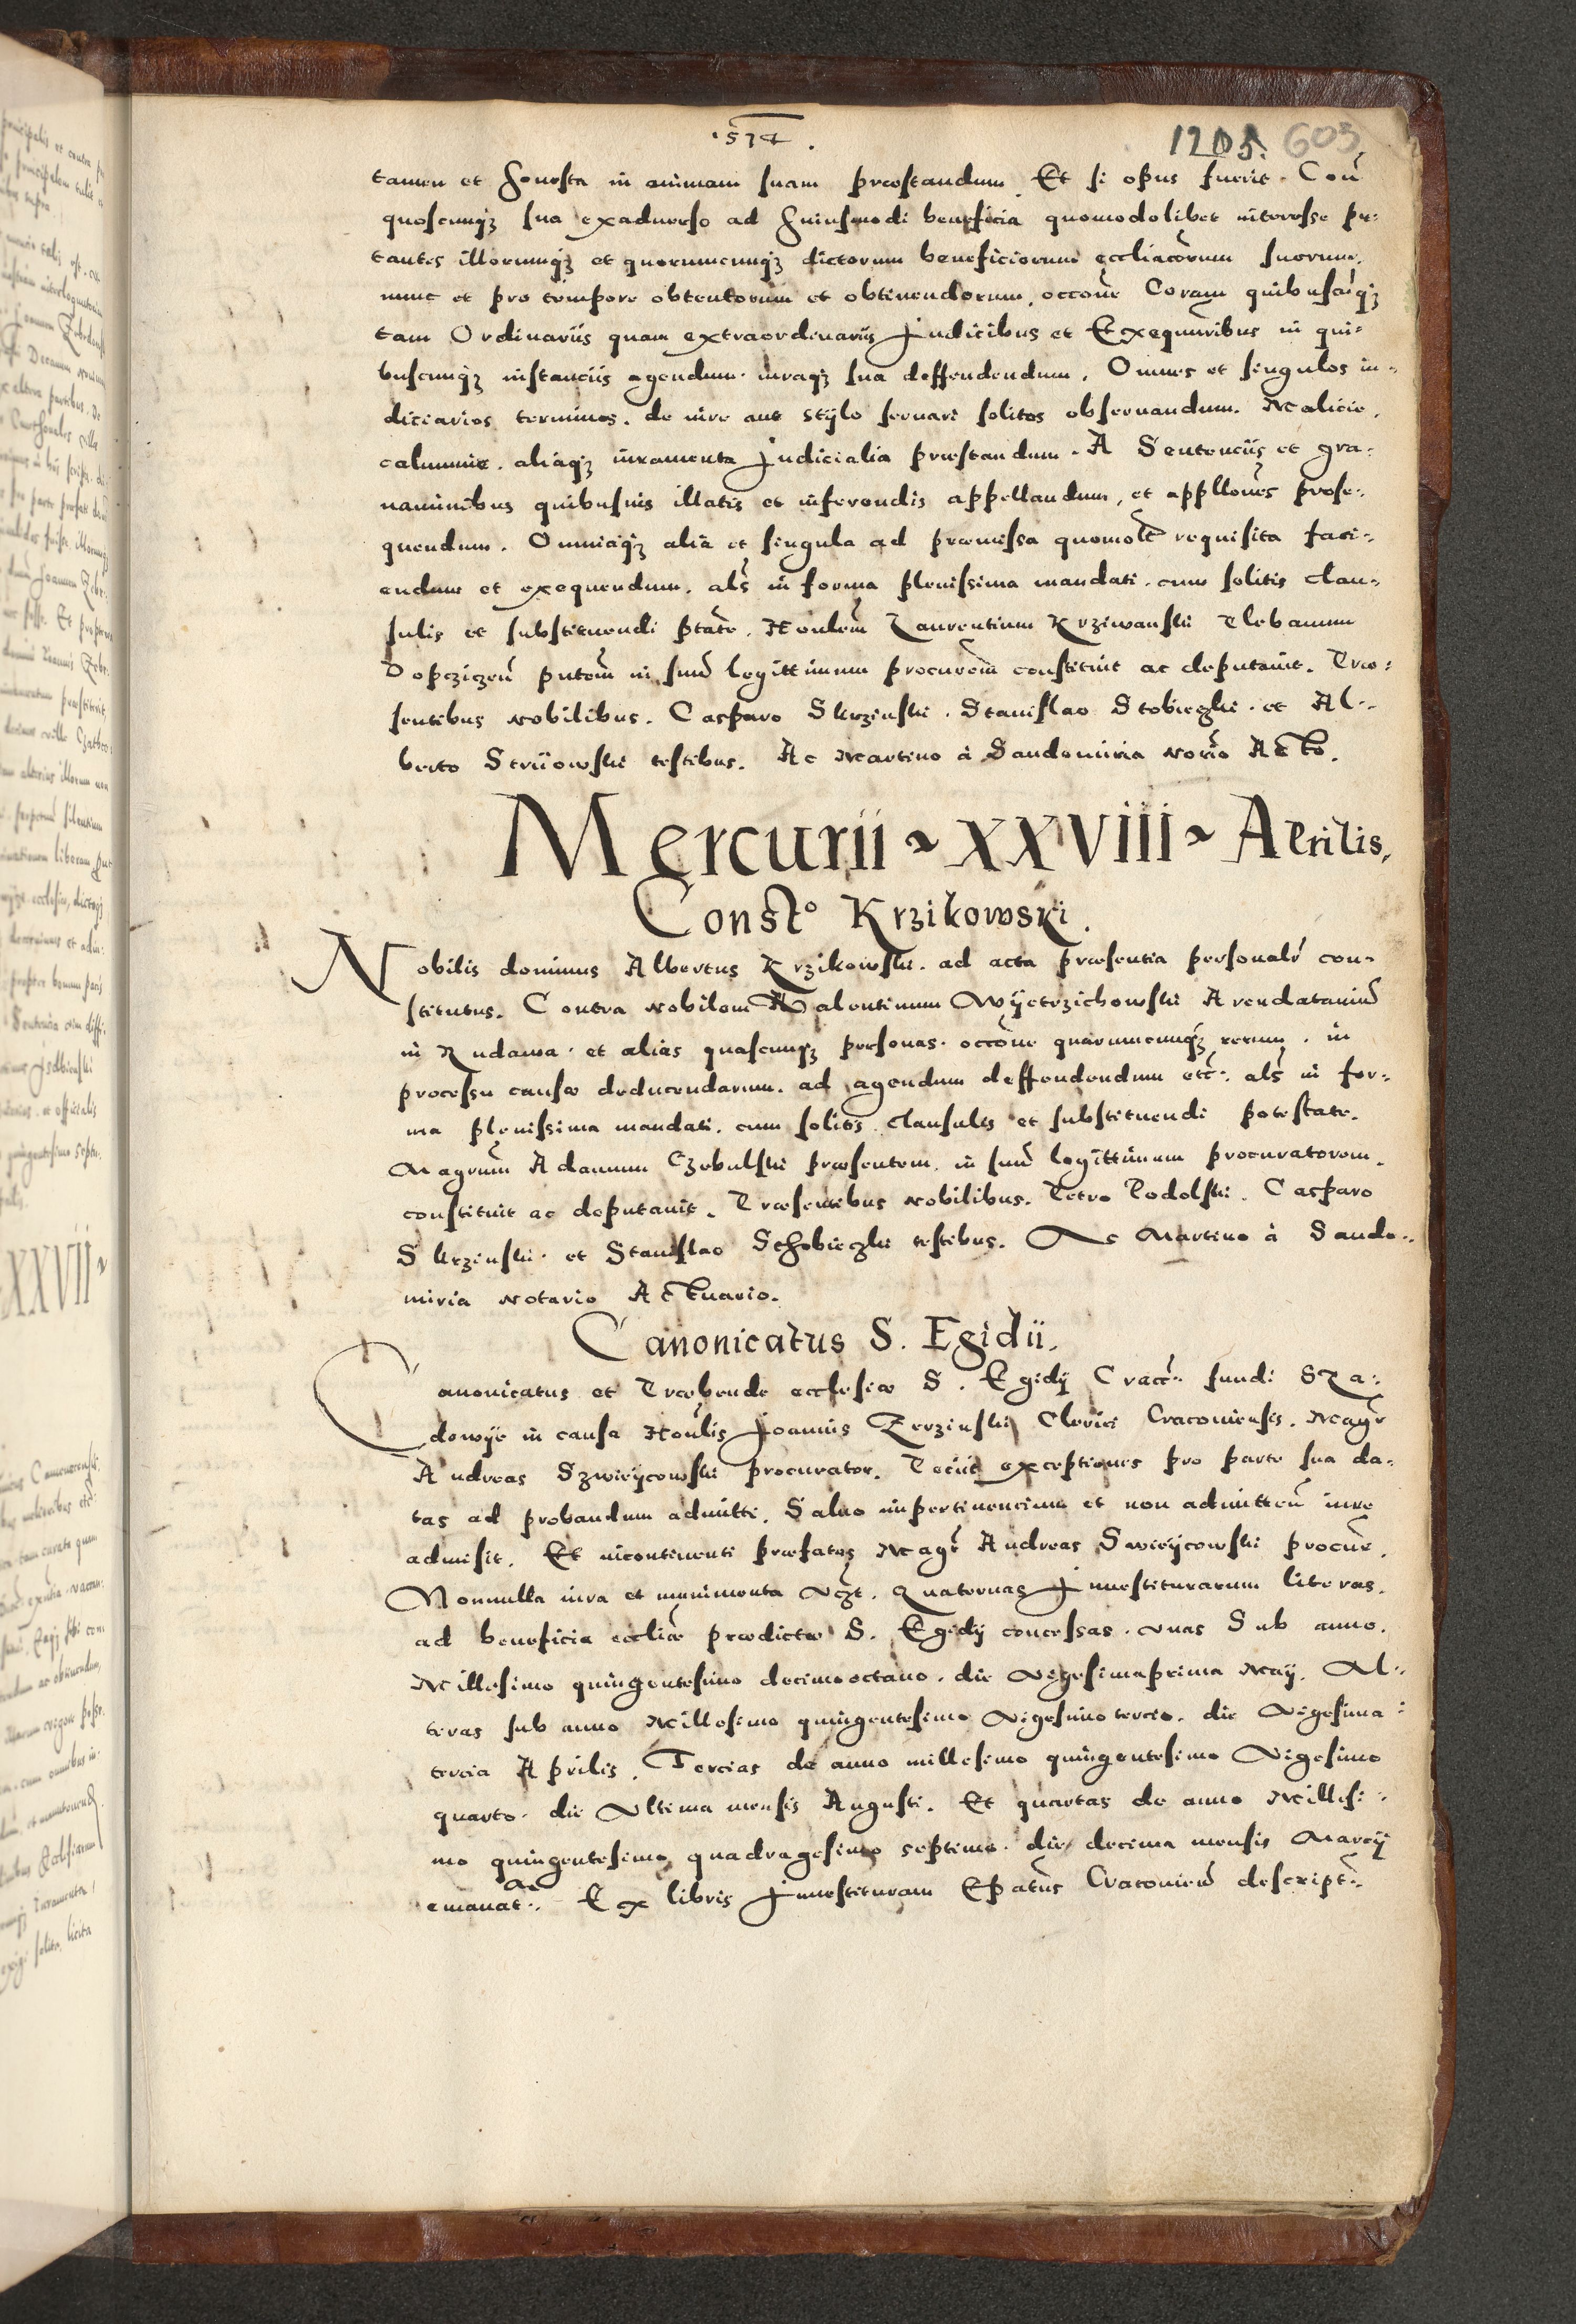 1574.
1205. 603
tamen et honesta in animam suam præstandum. Et si opus fuerit. Con̄
quoscunqꝫ sua exaduerso ad huiusmodi beneficia quomodolibet interesse pu⸗
tantes illorumqꝫ et quorumcunqꝫ dictorum beneficiorum eccliacorum suorum.
nunc et pro tempore obtentorum et obtinendorum, occone Coram quibuscūqꝫ
tam Ordinariis quam extraordinariis Judicibus et Exequutoribus in qui⸗
buscunqꝫ instanciis agendum. iuraqꝫ sua deffendendum. Omnes et singulos iu⸗
diciarios terminos. de iure aut stÿlo seruari solitos obseruandum. Malicie.
calumnie. aliaqꝫ iuramenta Judicialia præstandum. A Sentenciis et gra⸗
uaminibus quibusuis illatis et inferendis appellandum, et appllones prose⸗
quendum. Omniaqꝫ alia et singula ad præmissa quomolt requisita faci⸗
endum et exequendum. als in forma plenissima mandati. cum solitis clau⸗
sulis et substituendi ptate. Honlem Laurentium Krziwanski Plebanum
Dopcziczen putem in suū legittimum procurem constituit ac deputauit. Præ⸗
sentibus Nobilibus. Casparo Skrzinski. Stanislao Stobieczki. et Al⸗
berto Strÿiowski testibus. Ac Martino à Sandomiria Norio Acto.
Mercurii ~ XXVIII ~ Aprilis.
Const.º Krzikowski.
Nobilis dominus Albertus Krzikowski. ad acta præsentia personalr con⸗
stitutus. Contra Nobilem Valentinum Wÿetrzichowski Arendatariū
in Rudawa. et alias quascunqꝫ personas. occone quarumcunqꝫ rerum. in
processu causæ deducendarum. ad agendum deffendendum etc. als in for⸗
ma plenissima mandati. cum solitis clausulis et substituendi potestate.
Magrum Adamum Czebulski præsentem. in suū legittimum procuratorem.
constituit ac deputauit. Præsentibus Nobilibus. Petro Podolski. Casparo
Skrzinski. et Stanislao Sthobieczki testibus. Ac Martino à Sando⸗
miria Notario Actuario.
Canonicatus S. Egidii.
Canonicatus et Præbende ecclesiæ S. Egidÿ Cracc. fundi Sza⸗
dowÿe in causa Honlis Joannis Zerzinski Clerici Cracouiensis. Magr
Andreas Szwieÿcowski procurator. Peciit exceptiones pro parte sua da⸗
tas ad probandum admitti. Saluo impertinencium et non admitten iure
admisit. Et incontinenti præfatus Magr Andreas Swieÿcowski procur.
Nonnulla iura et munimenta vꝫt. Quaternas Jnuestiturarum literas.
ad beneficia eccliæ prædictæ S. Egidÿ concessas. Vnas Sub anno.
Millesimo quingentesimo decimooctauo. die Vigesimaprima Maÿ. Al⸗
teras sub anno Millesimo quingentesimo Vigesimo tercio. die Vigesima⸗
tercia Aprilis. Tercias de anno millesimo quingentesimo Vigesimo
quarto. die Vltima mensis Augusti. Et quartas de anno Millesi⸗
mo quingentesimo quadragesimo septimo. die decima mensis Marcÿ
emanat. ac Ex libris Jnuestituram Epatus Cracouien descript.